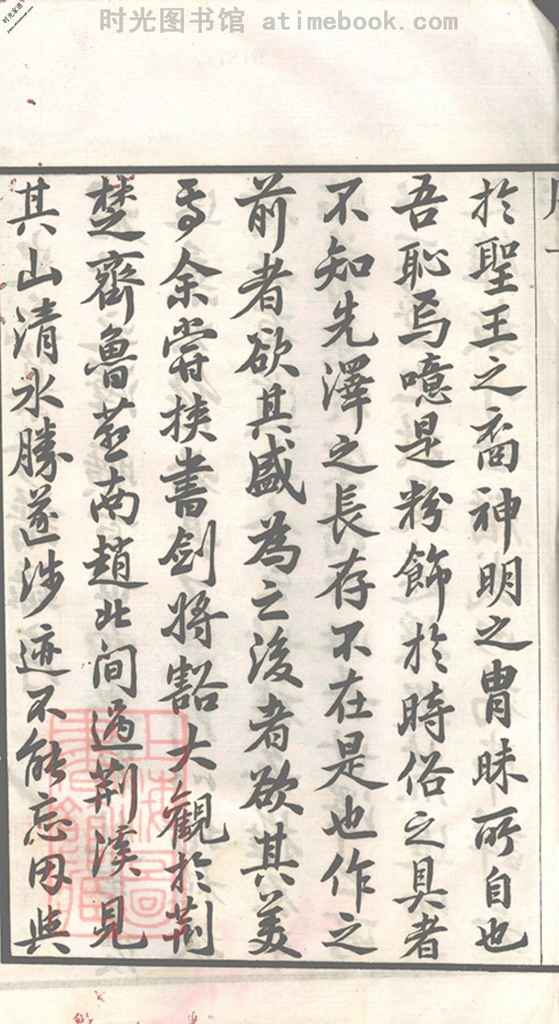 时光图书馆 atimebook.com
於聖王之裔神明之胄昧所自也
吾恥焉噫是粉飾於時俗之具者
不知先澤之長存不在是也作之
前者欲其盛為之後者欲其美
焉余嘗挾書劍將豁大觀於荊
楚齊魯燕南趙北间過荊溪見
其山清水勝遂涉迹不能忘因與